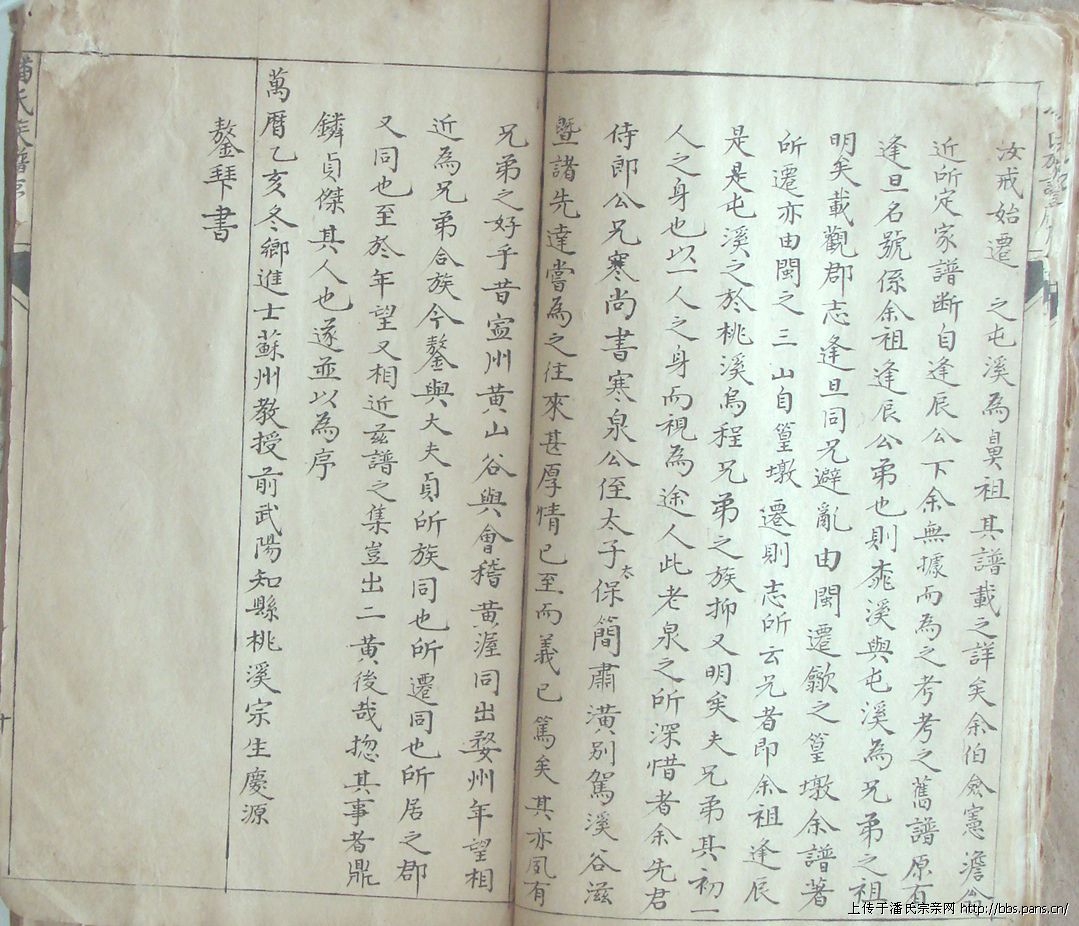 汝戒始遷 之屯溪為鼻祖其譜載之詳矣余伯僉憲澹翁
近所定家譜断自逢辰公下余無據而為之考考之舊譜原有
逢旦名號係余祖逢辰公弟也則桃溪與屯溪為兄弟之祖
明矣載觀郡志逢旦同兄避亂由閩遷歙之篁墩余譜著
所遷亦由閩之三山自篁墩遷則志所云兄者即余祖逢辰
是是屯溪之於桃溪烏程兄弟之族抑又明矣夫兄弟其初一
人之身也以一人之身而視為途人此老泉之所深惜者余先君
侍郎公兄寒尚書寒泉公侄太子太保簡肅潢別駕溪谷滋
暨諸先達嘗為之往來甚厚情已至而義已篤矣其亦夙有
兄弟之好乎昔寍州黄山谷與會稽黄渥同出婺州年望相
近為兄弟合族今鏊與大夫貞所族同也所遷同也所居之郡
又同也至於年望又相近兹譜之集豈出二黄後哉揔其事者鼎
鏻貞傑其人也遂並以為序
萬暦乙亥冬鄉進士蘇州教授前武陽知縣桃溪宗生慶源
鏊拜書
潘氏族譜
十
上传于潘氏宗亲网 http://bbs.pans.cn/